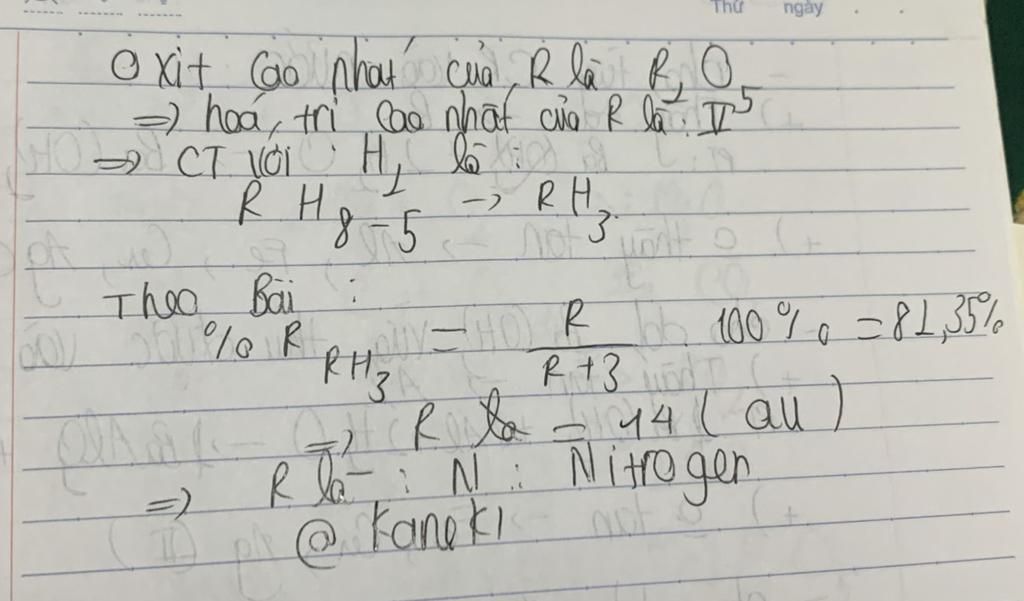 Thứ ngày
Oxit cao nhất của R là R₂O₅
=> hoá trị cao nhất của R là : V
=> CT với H₂ là :
R H₈₋₅ -> RH₃.
Theo Bài :
% R RH₃ = R / R+3 . 100% = 82,35%
=> R là = 14 (au)
=> R là : N : Nitrogen
@ Kaneki